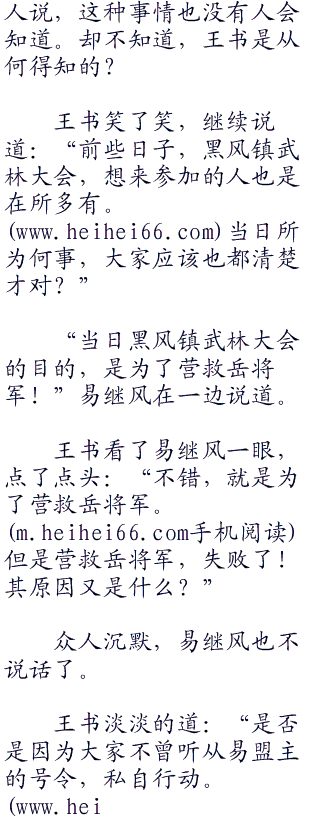 人说，这种事情也没有人会
知道。却不知道，王书是从
何得知的？
王书笑了笑，继续说
道：“前些日子，黑风镇武
林大会，想来参加的人也是
在所多有。
(www.heihei66.com)当日所
为何事，大家应该也都清楚
才对？”
“当日黑风镇武林大会
的目的，是为了营救岳将
军！”易继风在一边说道。
王书看了易继风一眼，
点了点头：“不错，就是为
了营救岳将军。
(m.heihei66.com手机阅读)
但是营救岳将军，失败了！
其原因又是什么？”
众人沉默，易继风也不
说话了。
王书淡淡的道：“是否
是因为大家不曾听从易盟主
的号令，私自行动。
(www.hei